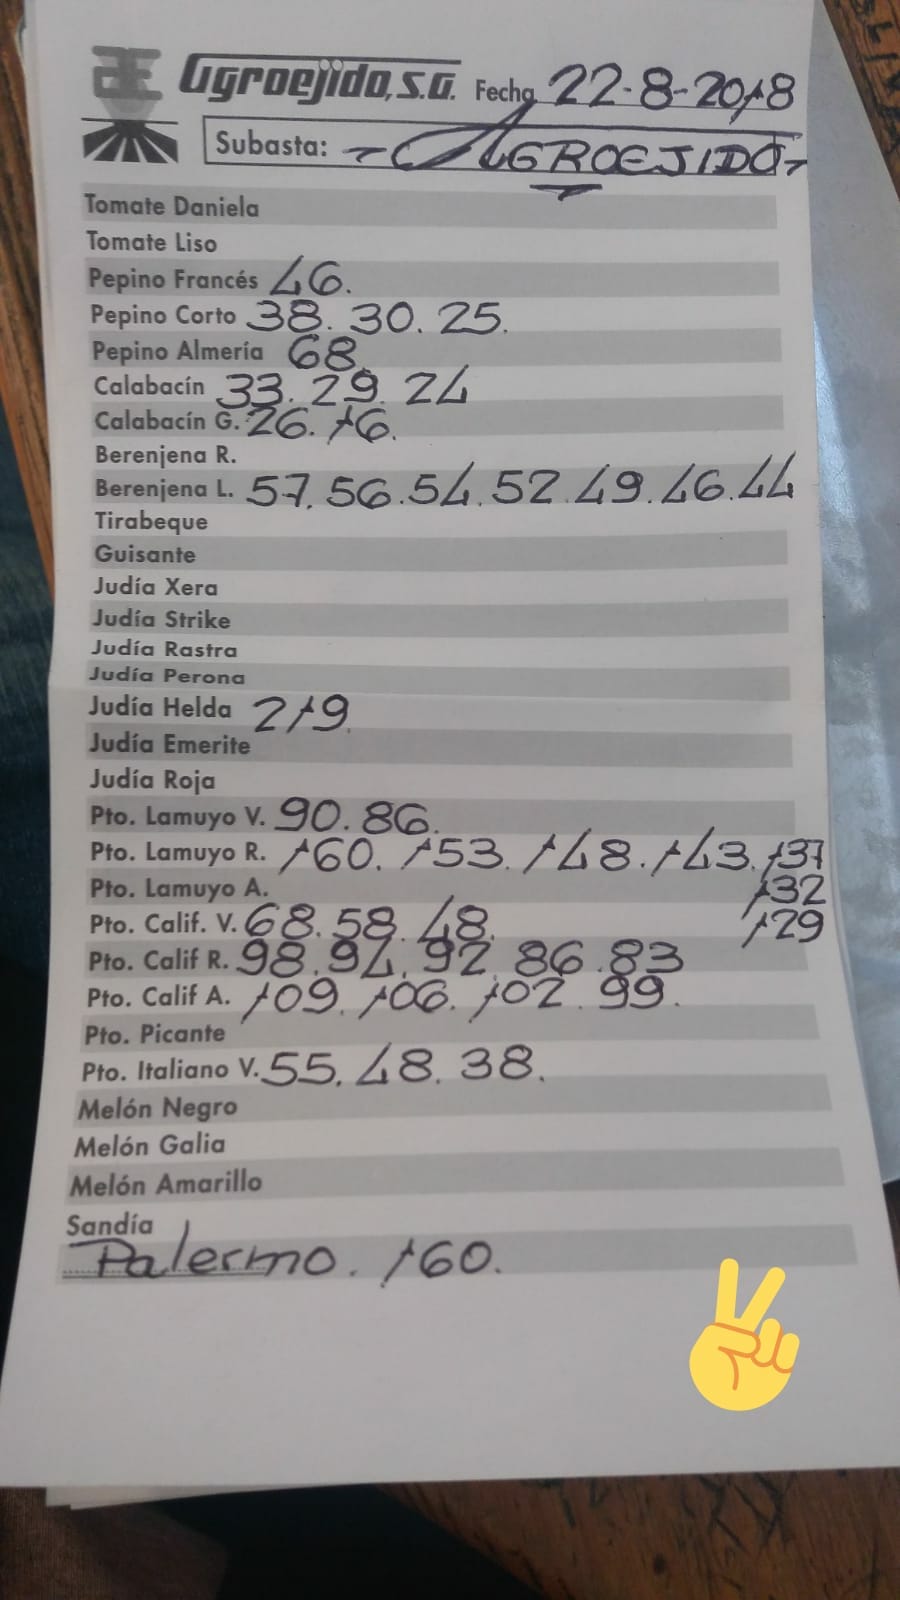 Agroejido, S.A. Fecha 22-8-2018
Subasta: AGROEJIDO
Tomate Daniela
Tomate Liso
Pepino Francés 46.
Pepino Corto 38. 30. 25.
Pepino Almería 68.
Calabacín 33. 29. 24
Calabacín G. 26. 16.
Berenjena R.
Berenjena L. 57. 56. 54. 52. 49. 46. 44
Tirabeque
Guisante
Judía Xera
Judía Strike
Judía Rastra
Judía Perona
Judía Helda 219.
Judía Emerite
Judía Roja
Pto. Lamuyo V. 90. 86.
Pto. Lamuyo R. 160. 153. 148. 143. 137
Pto. Lamuyo A. 132
Pto. Calif. V. 68. 58. 48. 129
Pto. Calif R. 98. 94. 92. 86. 83
Pto. Calif A. 109. 106. 102. 99.
Pto. Picante
Pto. Italiano V. 55. 48. 38.
Melón Negro
Melón Galia
Melón Amarillo
Sandía
Palermo. 160.